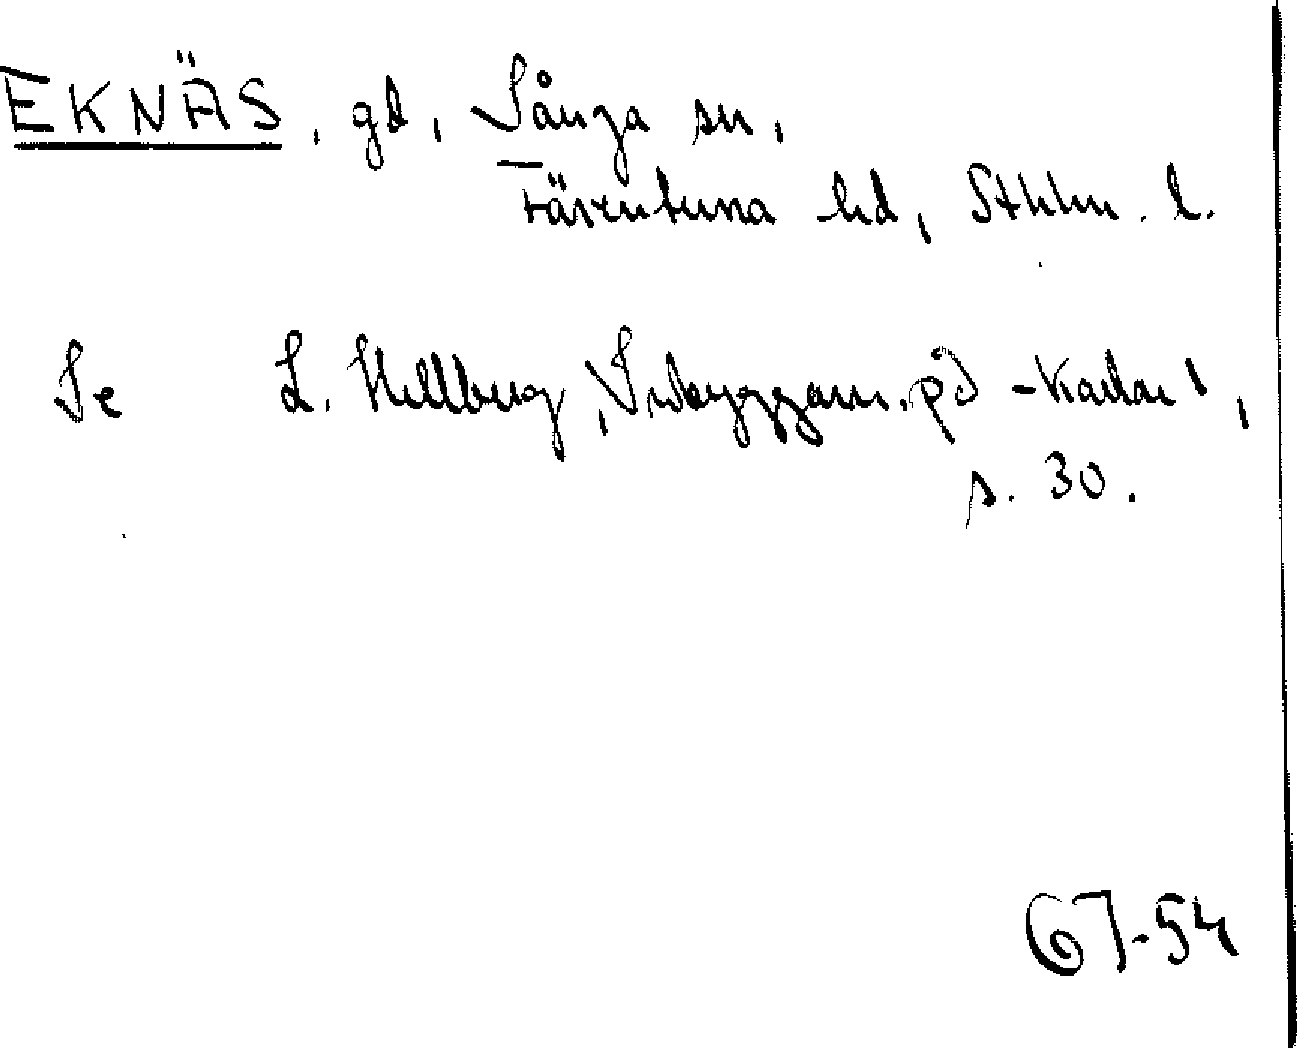 EKNÄS, gd, Sånga sn,
Färentuna hd, Sthlm. l.
Se L. Hellberg, Inbyggarn. på -karlar,
s. 30.
67-54